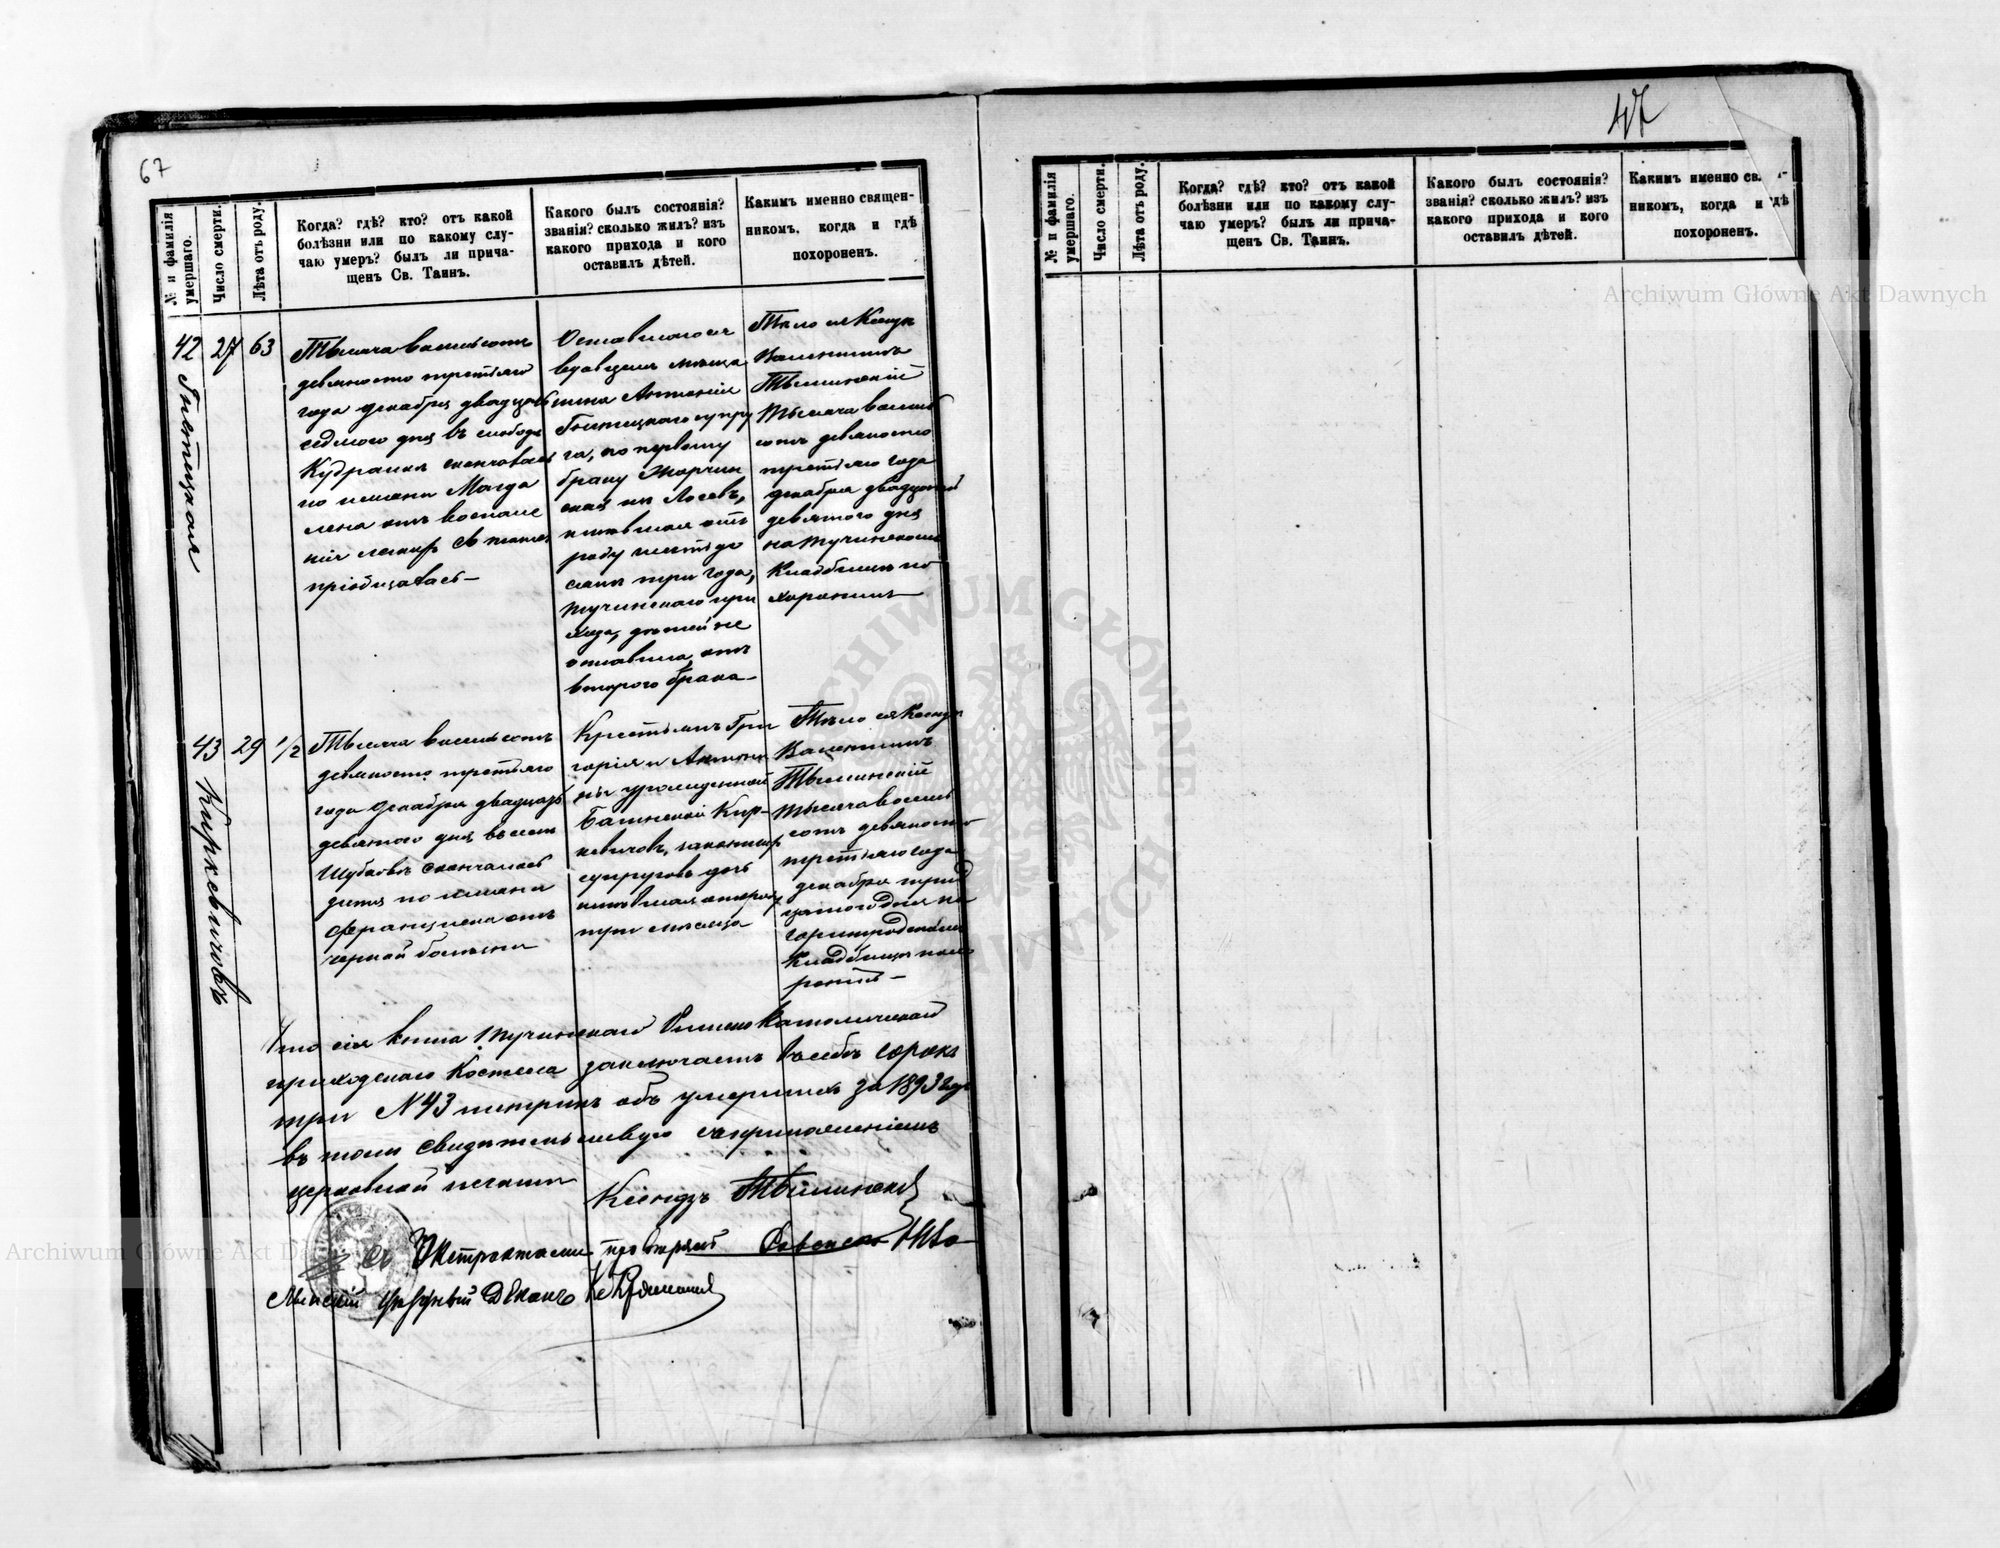 67
№ и фамилія умершаго.
Число смерти.
Лѣта отъ роду.
Когда? гдѣ? кто? отъ какой
болѣзни или по какому слу-
чаю умеръ? былъ ли прича-
щенъ Св. Таинъ.
Какого былъ состоянія?
званія? сколько жилъ? изъ
какого прихода и кого
оставилъ дѣтей.
Какимъ именно священ-
никомъ, когда и гдѣ
похороненъ.
42
27
63
Тысяча восемьсотъ
девяносто третьяго
года декабря двадцать
седьмого дня въ слободѣ
скончалась
по имени Магда
лена отъ воспале
нія легкихъ Св таинъ
пріобщалась—
Оставшагося
вдовцемъ мѣща
нина Антонія
супру
га, по первому
браку
имѣвшая отъ
роду шестьде
сятъ три года,
Тучинскаго при
хода, дѣтей не
оставила отъ
второго брака—
Тѣло ея Ксендзъ
Валентинъ
Тысяча восемь
сотъ девяносто
третьяго года
декабря двадцать
девятого дня
на Тучинскомъ
Кладбищѣ по
хоронилъ—
43
Киркевичовъ
29
1/2
Тысяча восемьсотъ
девяносто третьяго
года Декабря двадцать
девятого дня въ селѣ
Шубковѣ скончалось
дитя по имени
Францишка отъ
черной болѣзни
Крестьянъ Гри
горія и Антони
ны урожденной
Кир-
кевичовъ, законныхъ
супруговъ дочь
имѣвшая отъ роду
три мѣсяца
Тѣло ея Ксендзъ
Валентинъ
Тысяча восемь
сотъ девяносто
третьяго года
декабря трид
цатого дня на
Кладбищѣ похо
ронилъ—
Что сія книга Тучинскаго Римско Католическаго
приходскаго Костела заключаетъ въ себѣ сорокъ
три N43 метрикъ объ умершихъ за 1893 годъ
въ томъ свидѣтельствую съ приложеніемъ
церковной печати
Ксендзъ
Съ Экстрактами провѣрялъ
Деканъ
47
№ и фамилія умершаго.
Число смерти.
Лѣта отъ роду.
Когда? гдѣ? кто? отъ какой
болѣзни или по какому слу-
чаю умеръ? былъ ли прича-
щенъ Св. Таинъ.
Какого былъ состоянія?
званія? сколько жилъ? изъ
какого прихода и кого
оставилъ дѣтей.
Какимъ именно св
никомъ, когда и гдѣ
похороненъ.
Archiwum Główne Akt Dawnych
Archiwum Główne Akt Dawnych
ARCHIWUM GŁÓWNE AKT DAWNYCH